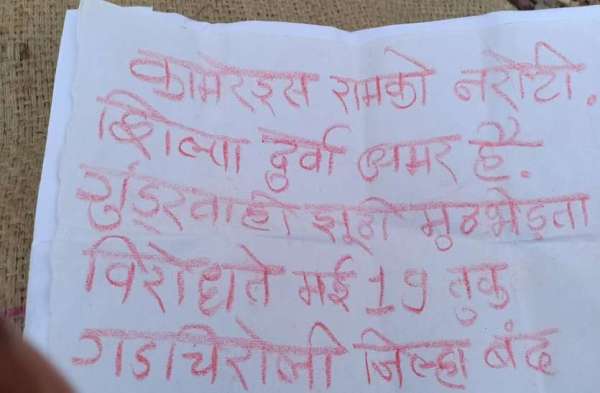 कामरेड्स रामको नरोटी.
शिल्पा दुर्वा अमर है.
गुंडूरवाही झूठी मुठभेड़ता
विरोधते मई 19 तुक
गडचिरोली जिल्हा बंद